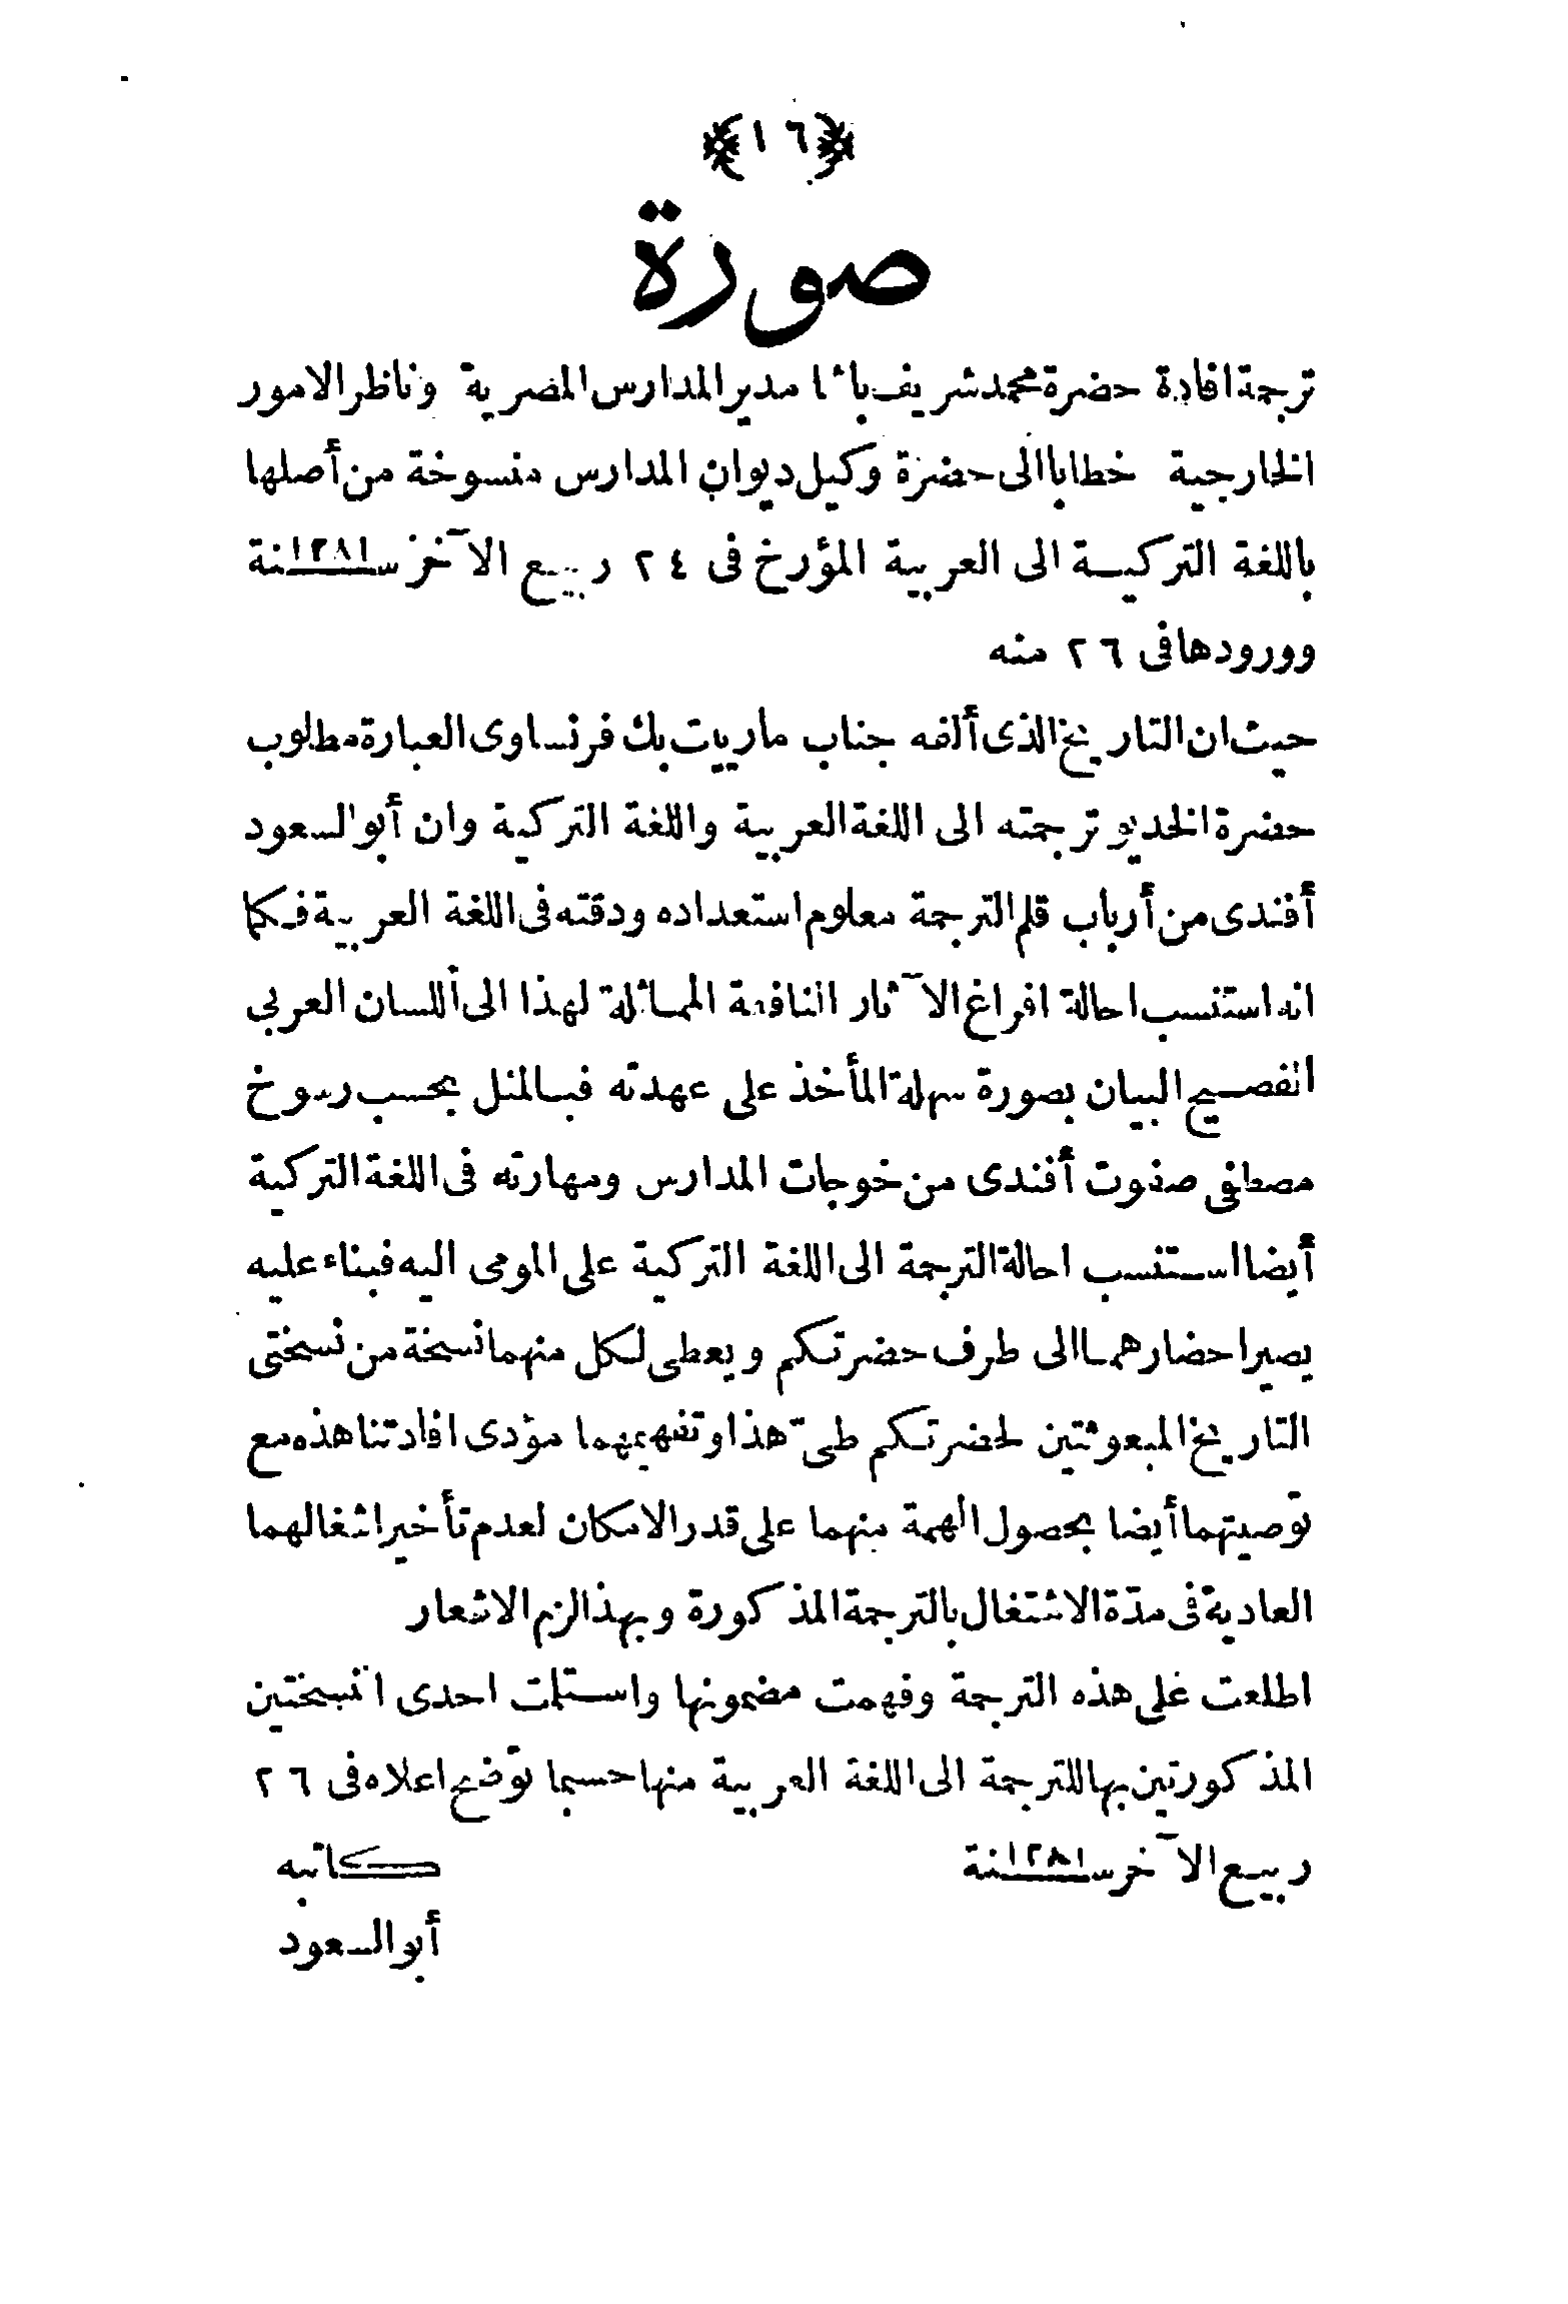 ﴿١٦﴾
صورة
ترجمة افادة حضرة محمد شريف باشا مدير المدارس المصرية وناظر الامور
الخارجية خطابا الى حضرة وكيل ديوان المدارس منسوخة من أصلها
باللغة التركيـة الى العربية المؤرخ فى ٢٤ ربيع الآخر سنة ١٢٨١
وورودها فى ٢٦ منه
حيث ان التاريخ الذى ألفه جناب مارييت بك فرنساوى العبارة مطلوب
حضرة الخديو ترجمته الى اللغة العربية واللغة التركية وان أبو السعود
أفندى من أرباب قلم الترجمة معلوم استعداده ودقته فى اللغة العربية فكما
انه استنسب احالة افراغ الآثار النافعة المماثلة لهذا الى اللسان العربى
الفصيح البيان بصورة سهلة المأخذ على عهدته فبالمثل بحسب رسوخ
مصطفى صفوت أفندى من خوجات المدارس ومهارته فى اللغة التركية
أيضا استنسب احالة الترجمة الى اللغة التركية على المومى اليه فبناء عليه
يصير احضارهما الى طرف حضرتكم ويعطى لكل منهما نسخة من نسختى
التاريخ المبعوثتين لحضرتكم طىّ هذا وتفهيمهما مؤدى افادتنا هذه مع
توصيتهما أيضا بحصول الهمة منهما على قدر الامكان لعدم تأخير اشغالهما
العادية فى مدّة الاشتغال بالترجمة المذكورة وبهذا لزم الاشعار
اطلعت على هذه الترجمة وفهمت مضمونها واستلمت احدى النسختين
المذكورتين بها للترجمة الى اللغة العربية منها حسبما توّضح اعلاه فى ٢٦
ربيع الآخر سنة ١٢٨١ كاتبه
أبو السعود